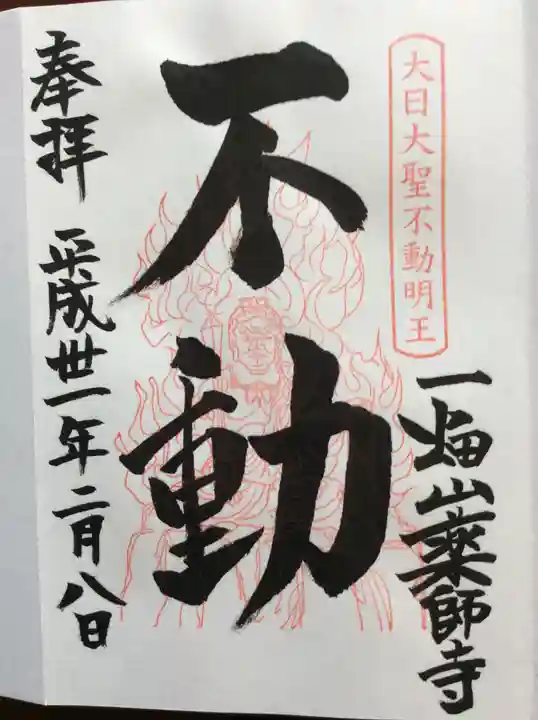 大日大聖不動明王
一畑山薬師寺
不動
奉拝 平成卅一年二月八日